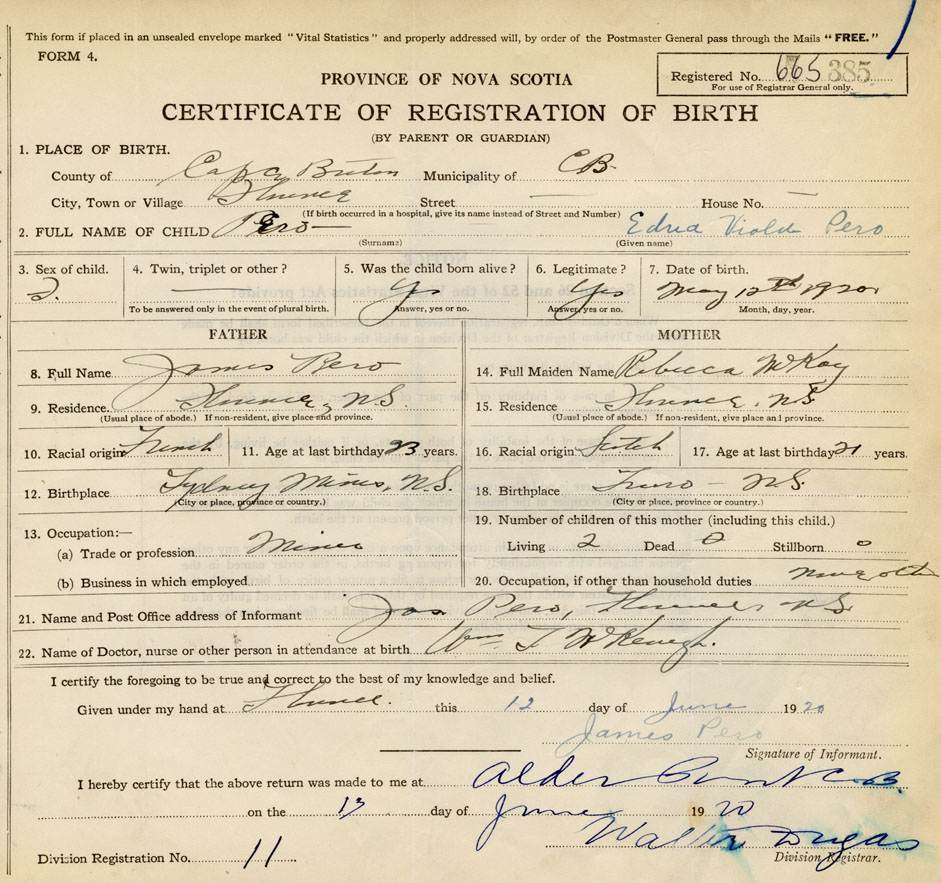 This form if placed in an unsealed envelope marked "Vital Statistics" and properly addressed will, by order of the Postmaster General pass through the Mails "FREE."
FORM 4.
Registered No. 665 385
For use of Registrar General only.
PROVINCE OF NOVA SCOTIA
CERTIFICATE OF REGISTRATION OF BIRTH
(BY PARENT OR GUARDIAN)
1. PLACE OF BIRTH.
County of Cape Breton Municipality of CB
City, Town or Village Florence Street — House No. —
(If birth occurred in a hospital, give its name instead of Street and Number)
2. FULL NAME OF CHILD Pero — Edna Viola Pero
(Surname) (Given name)
3. Sex of child. 4. Twin, triplet or other? 5. Was the child born alive? 6. Legitimate? 7. Date of birth.
— Yes Yes May 12th 1920
To be answered only in the event of plural birth. Answer, yes or no. Answer, yes or no. Month, day, year.
FATHER MOTHER
8. Full Name James Pero 14. Full Maiden Name Rebecca McKay
9. Residence. Florence, N.S. 15. Residence Florence. N.S
(Usual place of abode.) If non-resident, give place and province. (Usual place of abode.) If non-resident, give place and province.
10. Racial origin French 11. Age at last birthday 23 years. 16. Racial origin Scotch 17. Age at last birthday 21 years.
12. Birthplace Sydney Mines, N.S. 18. Birthplace Truro — N.S.
(City or place, province or country.) (City or place, province or country.)
19. Number of children of this mother (including this child.)
13. Occupation:—
(a) Trade or profession Miner Living 2 Dead 0 Stillborn 0
(b) Business in which employed 20. Occupation, if other than household duties None other
21. Name and Post Office address of Informant Jas Pero, Florence, N.S.
22. Name of Doctor, nurse or other person in attendance at birth Wm. T McKeough.
I certify the foregoing to be true and correct to the best of my knowledge and belief.
Given under my hand at Florence. this 12 day of June 1920
James Pero
Signature of Informant.
I hereby certify that the above return was made to me at Alder Point C.B.
on the 13 day of June 1920
Walter Dugas
Division Registrar.
Division Registration No. 11